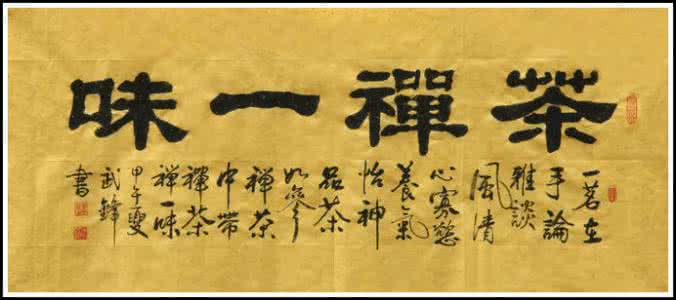 茶禪一味
一茗在
手論
雅談
風清
心寡慾
養氣
怡神
品茶
如參
禪茶
中帶
禪茶
禪一味
甲午夏
武鋒
書